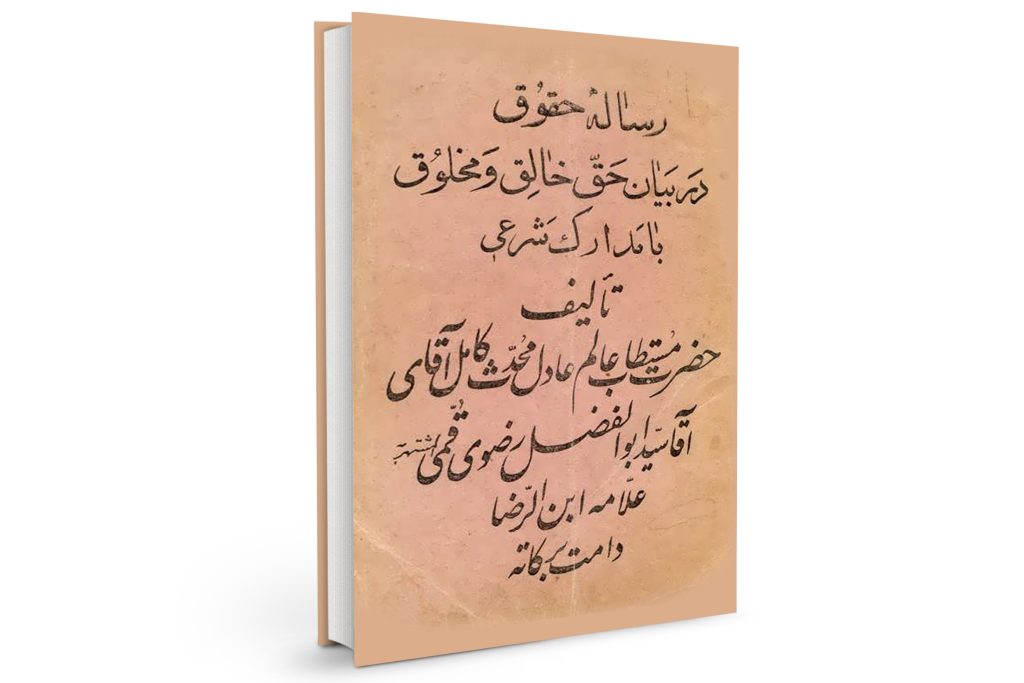 رسالهٔ حقوق
در بیان حَقّ خالِق وَ مخلوُق
با مدارک شرعی
تألیف
حضرت مُستطاب عالم عادل محُدّث کامل آقای
آقا سیّد ابوالفضل رضوی قُمی اشتهر به
علّامه ابن الرّضا
دامت برکاته